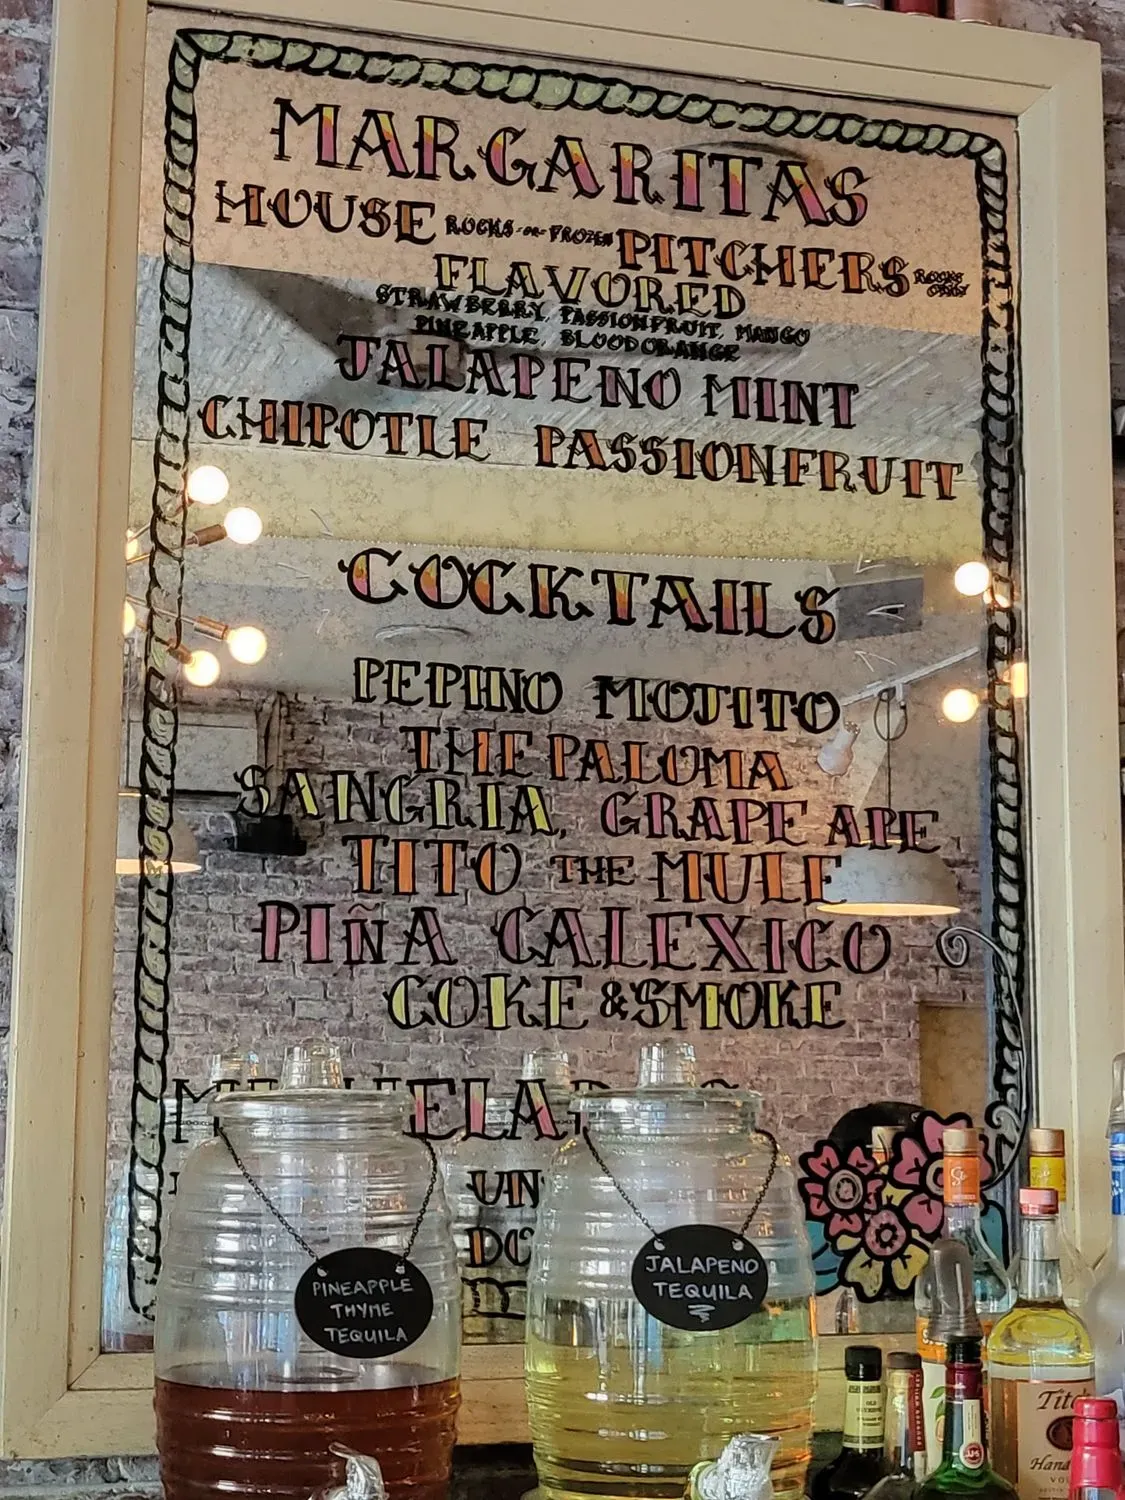 MARGARITAS
HOUSE ROCKS -OR- FROZEN PITCHERS ROCKS ONLY
FLAVORED
STRAWBERRY, PASSIONFRUIT, MANGO
PINEAPPLE, BLOOD ORANGE
JALAPENO MINT
CHIPOTLE PASSIONFRUIT
COCKTAILS
PEPINO MOJITO
THE PALOMA
SANGRIA, GRAPE APE
TITO THE MULE
PIÑA CALEXICO
COKE & SMOKE
UN
PINEAPPLE
THYME
TEQUILA
JALAPENO
TEQUILA
Tito
Hand